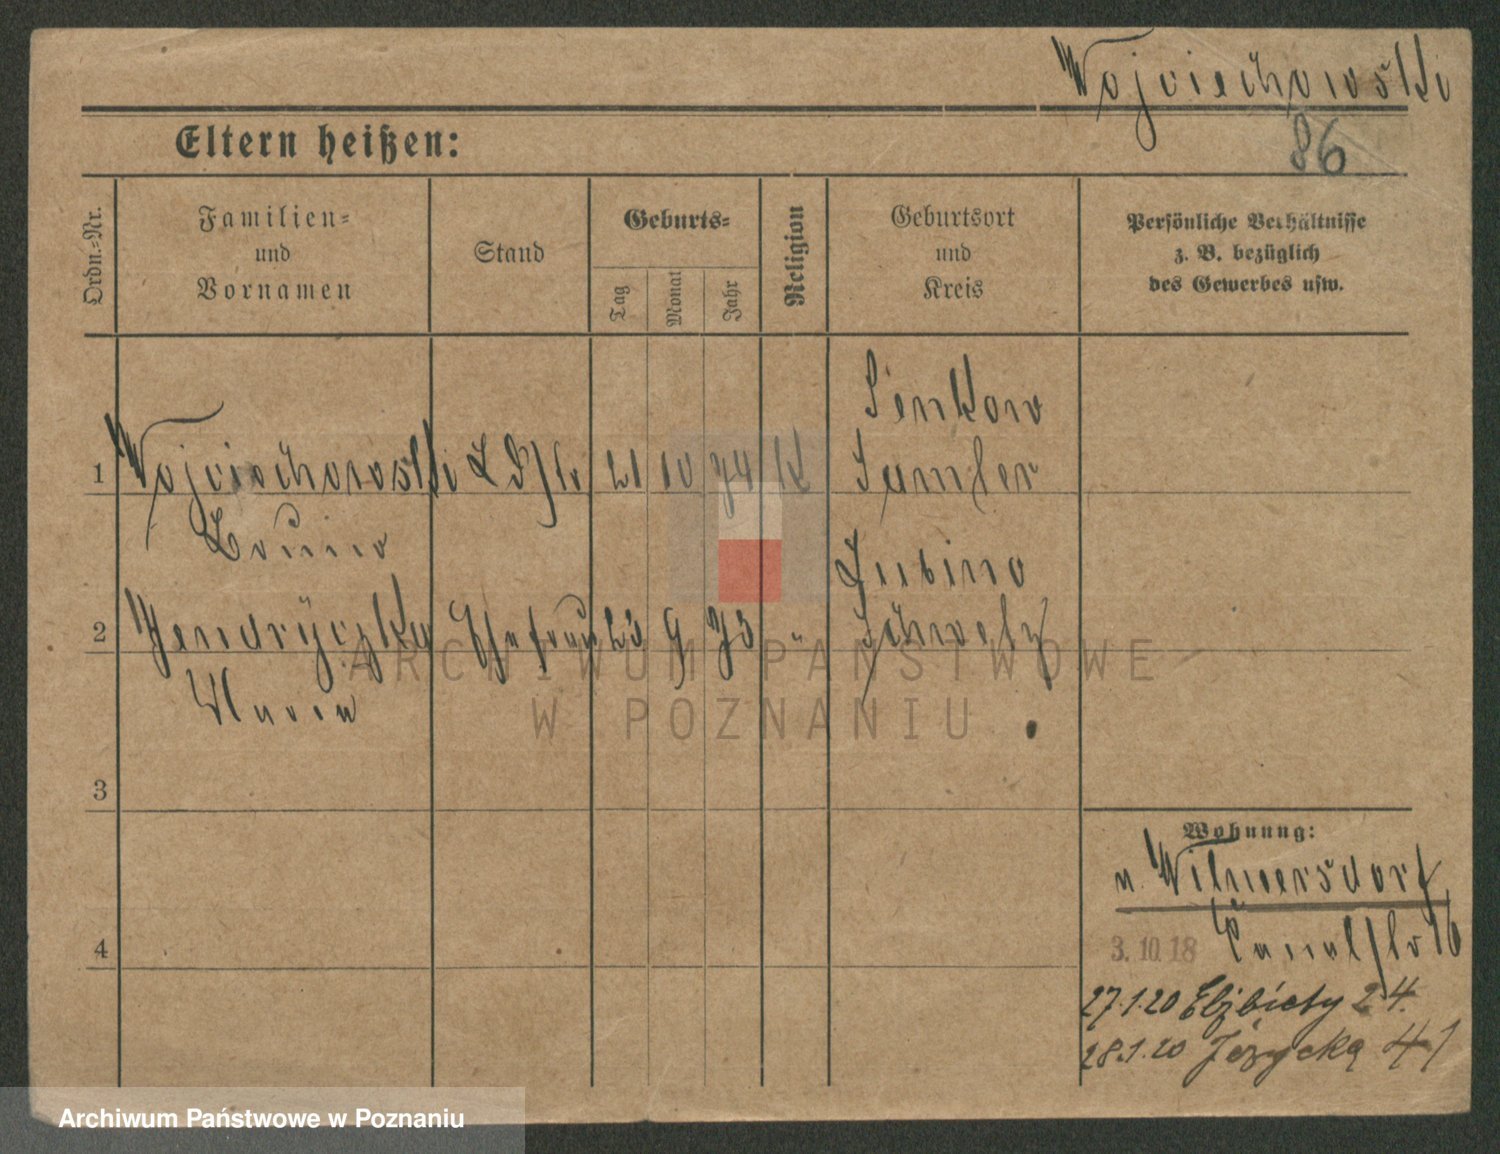 Wojciechowski
86
Eltern heißen:
Ordn.-Nr.
Familien-
und
Vornamen
Stand
Geburts-
Tag
Monat
Jahr
Religion
Geburtsort
und
Kreis
Persönliche Verhältnisse
z. B. bezüglich
des Gewerbes usw.
Senkowo
1 Wojciechowski 21 10 74 K Samter
Lubino
2 Ehefrau 23 9 73 "
Maria
3
4
Wohnung:
n. Wilmersdorf
3.10.18 16
27.1.20 Elżbiety 24.
28.1.20 Jeżycka 41
ARCHIWUM PAŃSTWOWE
W POZNANIU
Archiwum Państwowe w Poznaniu